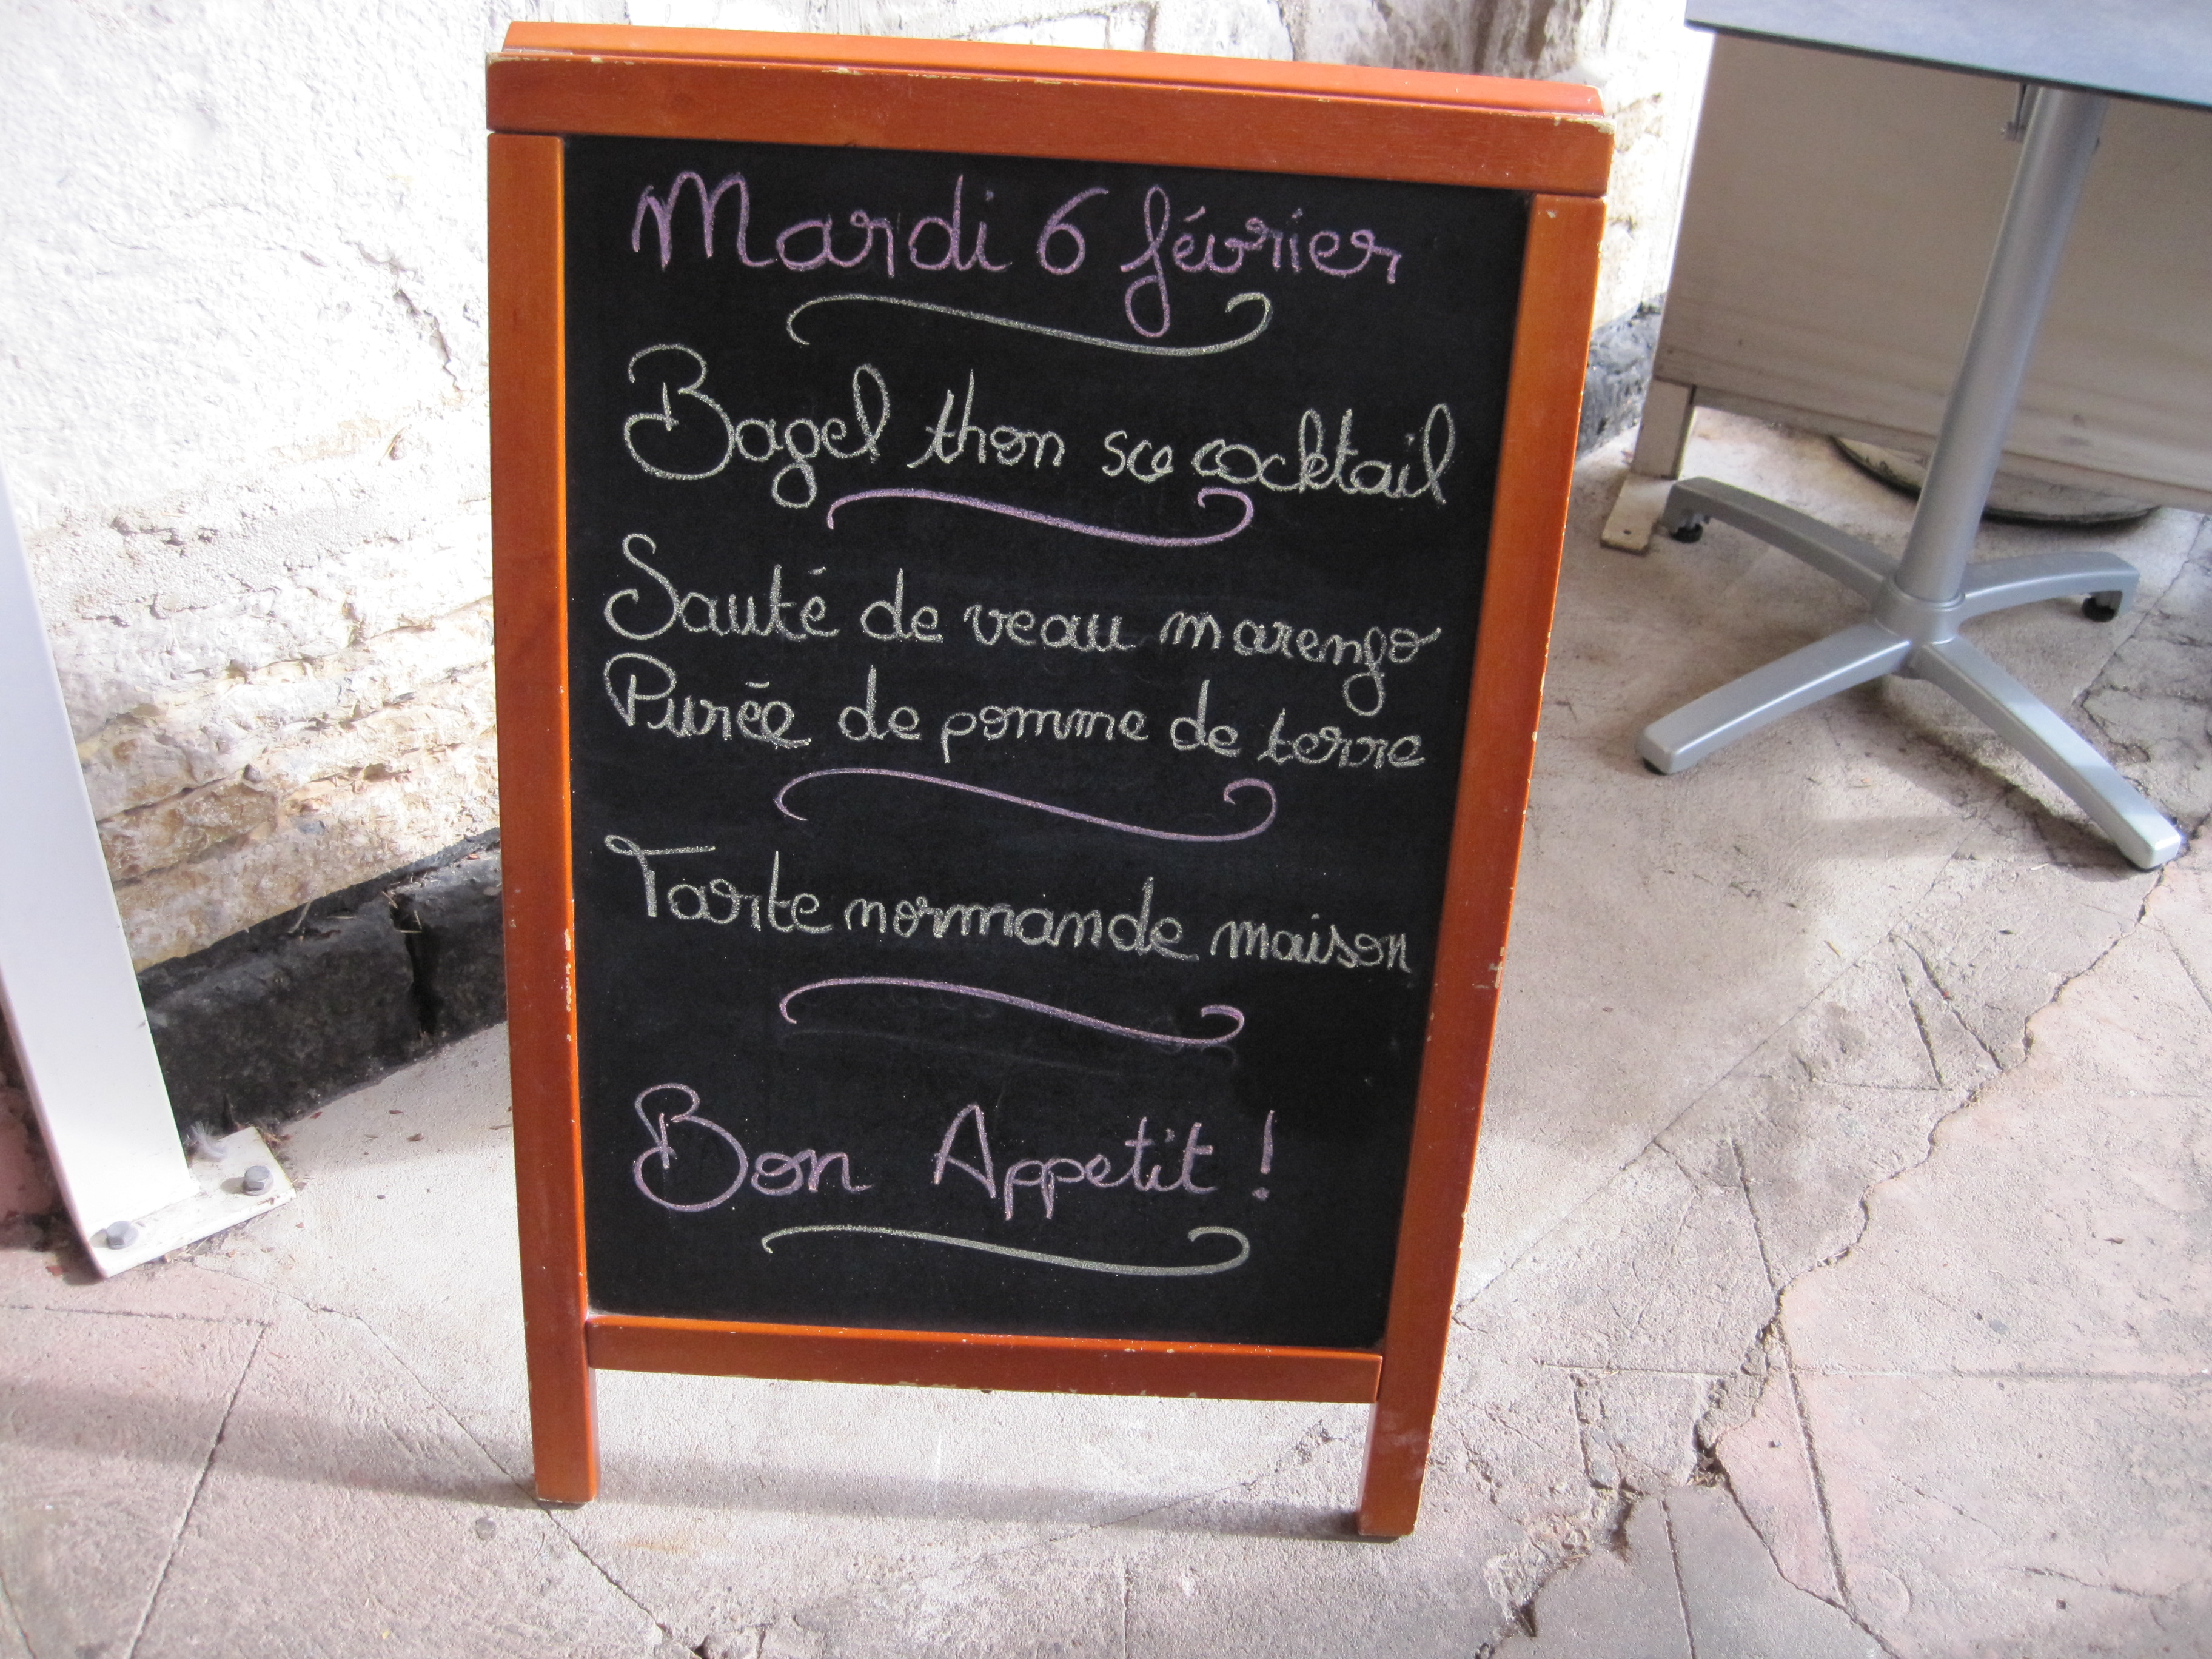 Mardi 6 février
Bagel thon sce cocktail
Sauté de veau marengo
Purée de pomme de terre
Tarte normande maison
Bon Appetit !